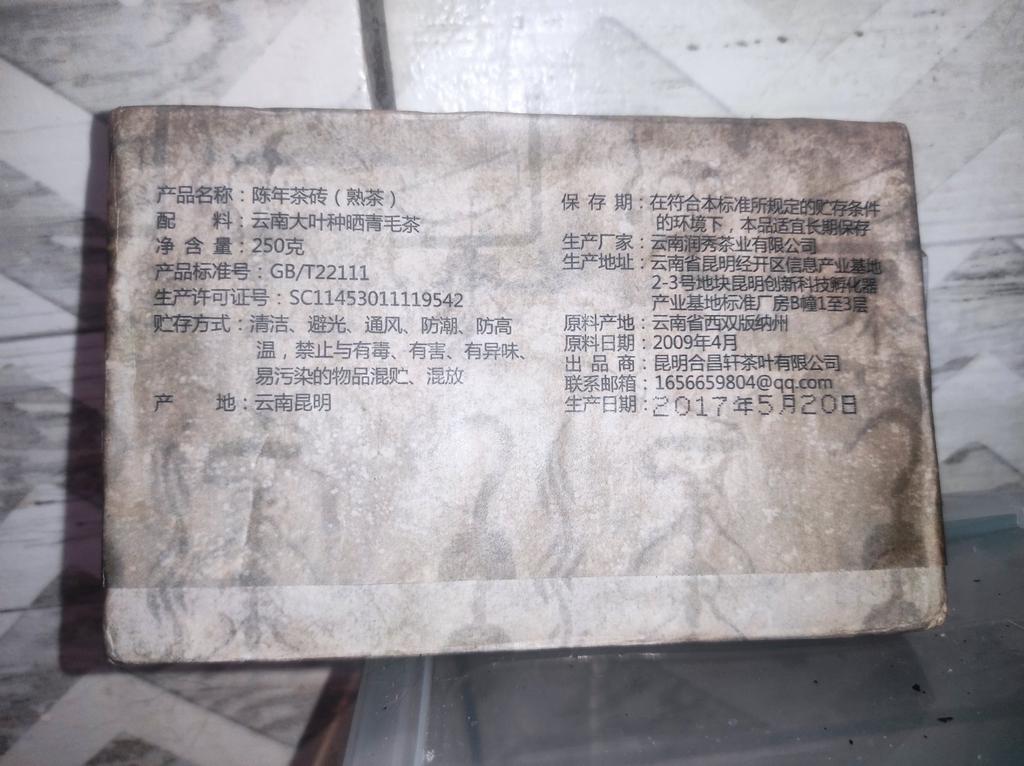 产品名称：陈年茶砖（熟茶）
配 料：云南大叶种晒青毛茶
净 含 量：250克
产品标准号：GB/T22111
生产许可证号：SC11453011119542
贮存方式：清洁、避光、通风、防潮、防高
温，禁止与有毒、有害、有异味、
易污染的物品混贮、混放
产 地：云南昆明
保 存 期：在符合本标准所规定的贮存条件
的环境下，本品适宜长期保存
生产厂家：云南润秀茶业有限公司
生产地址：云南省昆明经开区信息产业基地
2-3号地块昆明创新科技孵化器
产业基地标准厂房B幢1至3层
原料产地：云南省西双版纳州
原料日期：2009年4月
出 品 商：昆明合昌轩茶叶有限公司
联系邮箱：1656659804@qq.com
生产日期：2017年5月20日